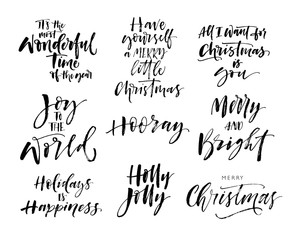 It's the
most
Wonderful
Time
of the year
Have
yourself
a MERRY
little
Christmas
All I want for
Christmas
is
you
Joy
TO THE
World
Hooray
Merry
AND
Bright
Holidays
IS
Happiness
Holly
Jolly
MERRY
Christmas